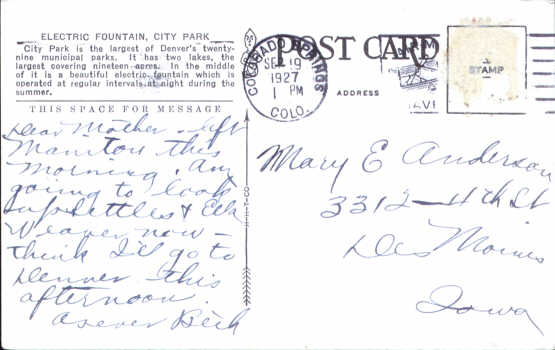 ELECTRIC FOUNTAIN, CITY PARK
City Park is the largest of Denver's twenty-
nine municipal parks. It has two lakes, the
largest covering nineteen acres. In the middle
of it is a beautiful electric fountain which is
operated at regular intervals at night during the
summer.
THIS SPACE FOR MESSAGE
Dear Mother. left
Manitou this
morning. Am
going to look
up &
Weaver now —
think I'll go to
Denver this
afternoon.
As ever
COLORADO SPRINGS
SEP 19
1927
1 PM
COLO.
POST CARD
ADDRESS
STAMP
Mary E Anderson
3312 — 11th St
Des Moines
Iowa